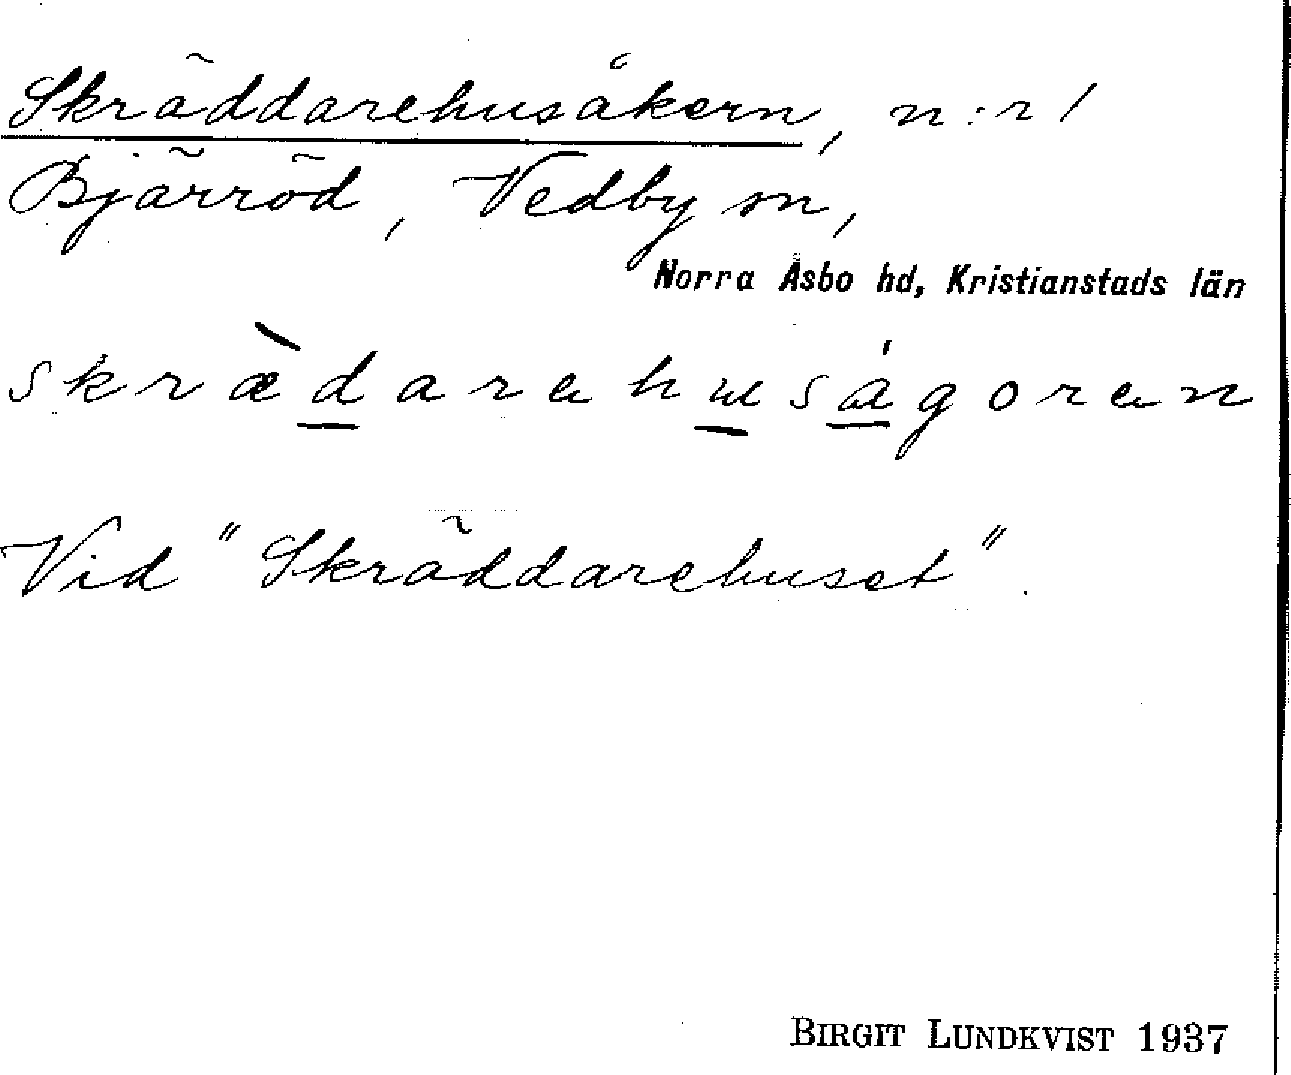 Skräddarehusåkern, n:r 1
Bjärröd, Vedby sn,
Norra Åsbo hd, Kristianstads län
skræ̀d̲arehu̲sá̲goren
Vid "Skräddarehuset".
BIRGIT LUNDKVIST 1937